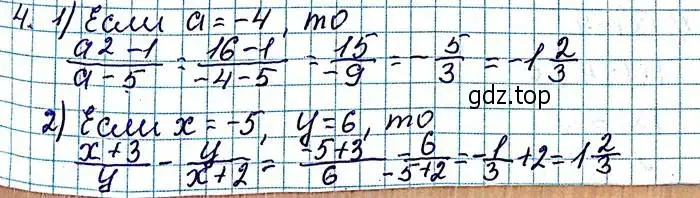 4. 1) Если a = -4, то
a2 - 1 / a - 5 = 16 - 1 / -4 - 5 = 15 / -9 = - 5/3 = -1 2/3
gdz.top
2) Если x = -5, y = 6, то
x + 3 / y - y / x + 2 = -5 + 3 / 6 - 6 / -5 + 2 = - 1/3 + 2 = 1 2/3